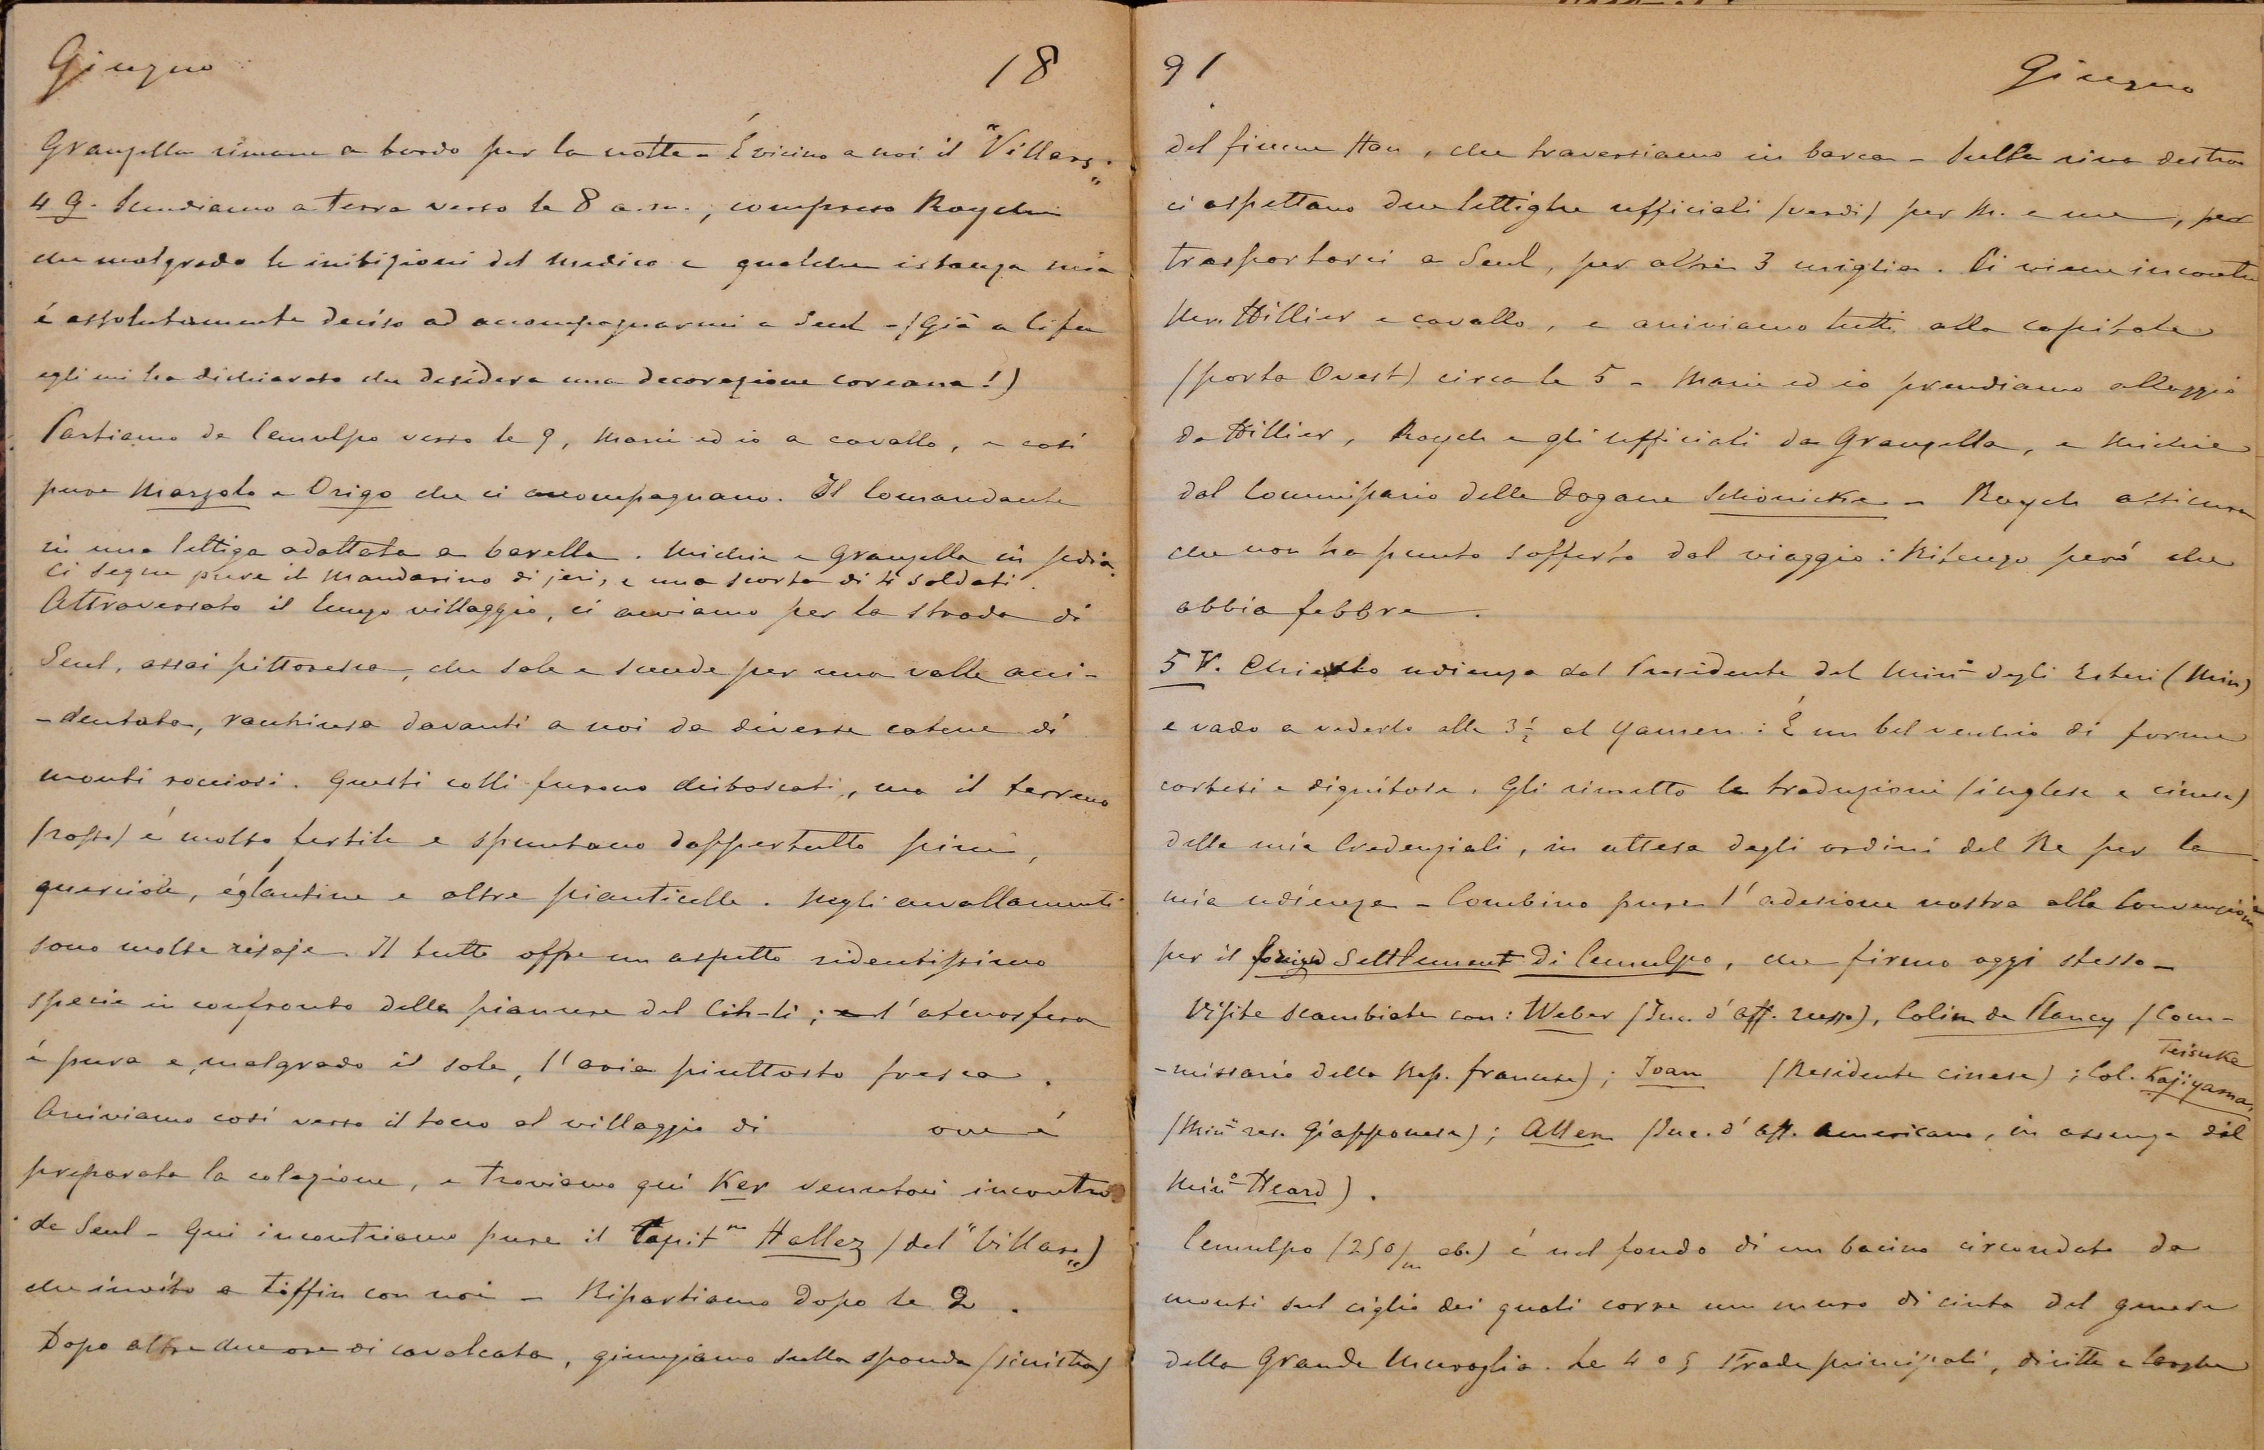 Giugno 18
Granzella rimane a bordo per la notte - É vicino a noi il "Villars".
4 G. Scendiamo a terra verso le 8 a.m., compreso Raych
che malgrado le inibizioni del medico e qualche istanza mia
é assolutamente deciso ad accompagnarmi a Seul - (Già a Cifu
egli mi ha dichiarato che desidera una decorazione coreana!)
Partiamo da Cemulpo verso le 9, Marie ed io a cavallo, e così
pure Marzolo e Origo che ci accompagnano. Il Comandante
in una lettiga adattata a barella. Michie e Granzella in sedia.
Ci segue pure il Mandarino di jeri, e una scorta di 4 soldati.
Attraversato il lungo villaggio, ci avviamo per la strada di
Seul, assai pittoresca, che sale e scende per una valle acci-
-dentata, racchiusa davanti a noi da diverse catene di
monti rocciosi. Questi colli furono diboscati, ma il terreno
(rosso) é molto fertile e spuntano dappertutto pini,
querciole, églantine e altre pianticelle. Negli avvallamenti
sono molte risaje. Il tutto offre un aspetto ridentissimo
specie in confronto della pianura del Cih-li; e l'atmosfera
é pura e, malgrado il sole, l'aria piuttosto fresca.
Arriviamo così verso il tocco al villaggio di ove é
preparata la colazione, e troviamo qui Ker venutoci incontro
da Seul - Qui incontriamo pure il Capit.no Hallez (del "Villars")
che invito a tiffin con noi - Ripartiamo dopo le 2.
Dopo altre due ore di cavalcata, giungiamo sulla sponda (sinistra)
91 Giugno
del fiume Han, che traversiamo in barca - Sulla riva destra
ci aspettano due lettighe ufficiali (verdi) per M. e me, per
trasportarci a Seul, per altre 3 miglia. Ci viene incontro
Hillier a cavallo, e arriviamo tutti alla capitale
(porta Ovest) circa le 5 - Marie ed io prendiamo alloggio
da Hillier, Raych e gli ufficiali da Granzella, e Michie
dal Commissario delle Dogane Schönicke - Raych assicura
che non ha punto sofferto dal viaggio: Ritengo però che
abbia febbre.
5 V. Chiesto udienza dal Presidente del Min.o degli Esteri (Min)
e vado a vederlo alle 3½ al Yamen: É un bel vecchio di forme
cortesi e dignitose. Gli rimetto le traduzioni (inglese e cinese)
delle mie Credenziali, in attesa degli ordini del Re per la
mia udienza - Combino pure l'adesione nostra alla Convenzione
per il foreign Settlement di Cemulpo, che firmo oggi stesso -
Visite scambiate con: Weber (Inc. d'aff. russo), Colin de Plancy (Com-
-missario della Rep. francese); Joan (Residente cinese); Col. Teisuke Kajiyama,
(Min.o res. Giapponese); Allen (Inc. d'aff. Americano, in assenza del
Min.o Heard).
Cemulpo (250/m ab.) é nel fondo di un bacino circondato da
monti sul ciglio dei quali corre un muro di cinta del genere
della Grande Muraglia. Le 4 o 5 strade principali, diritte e larghe